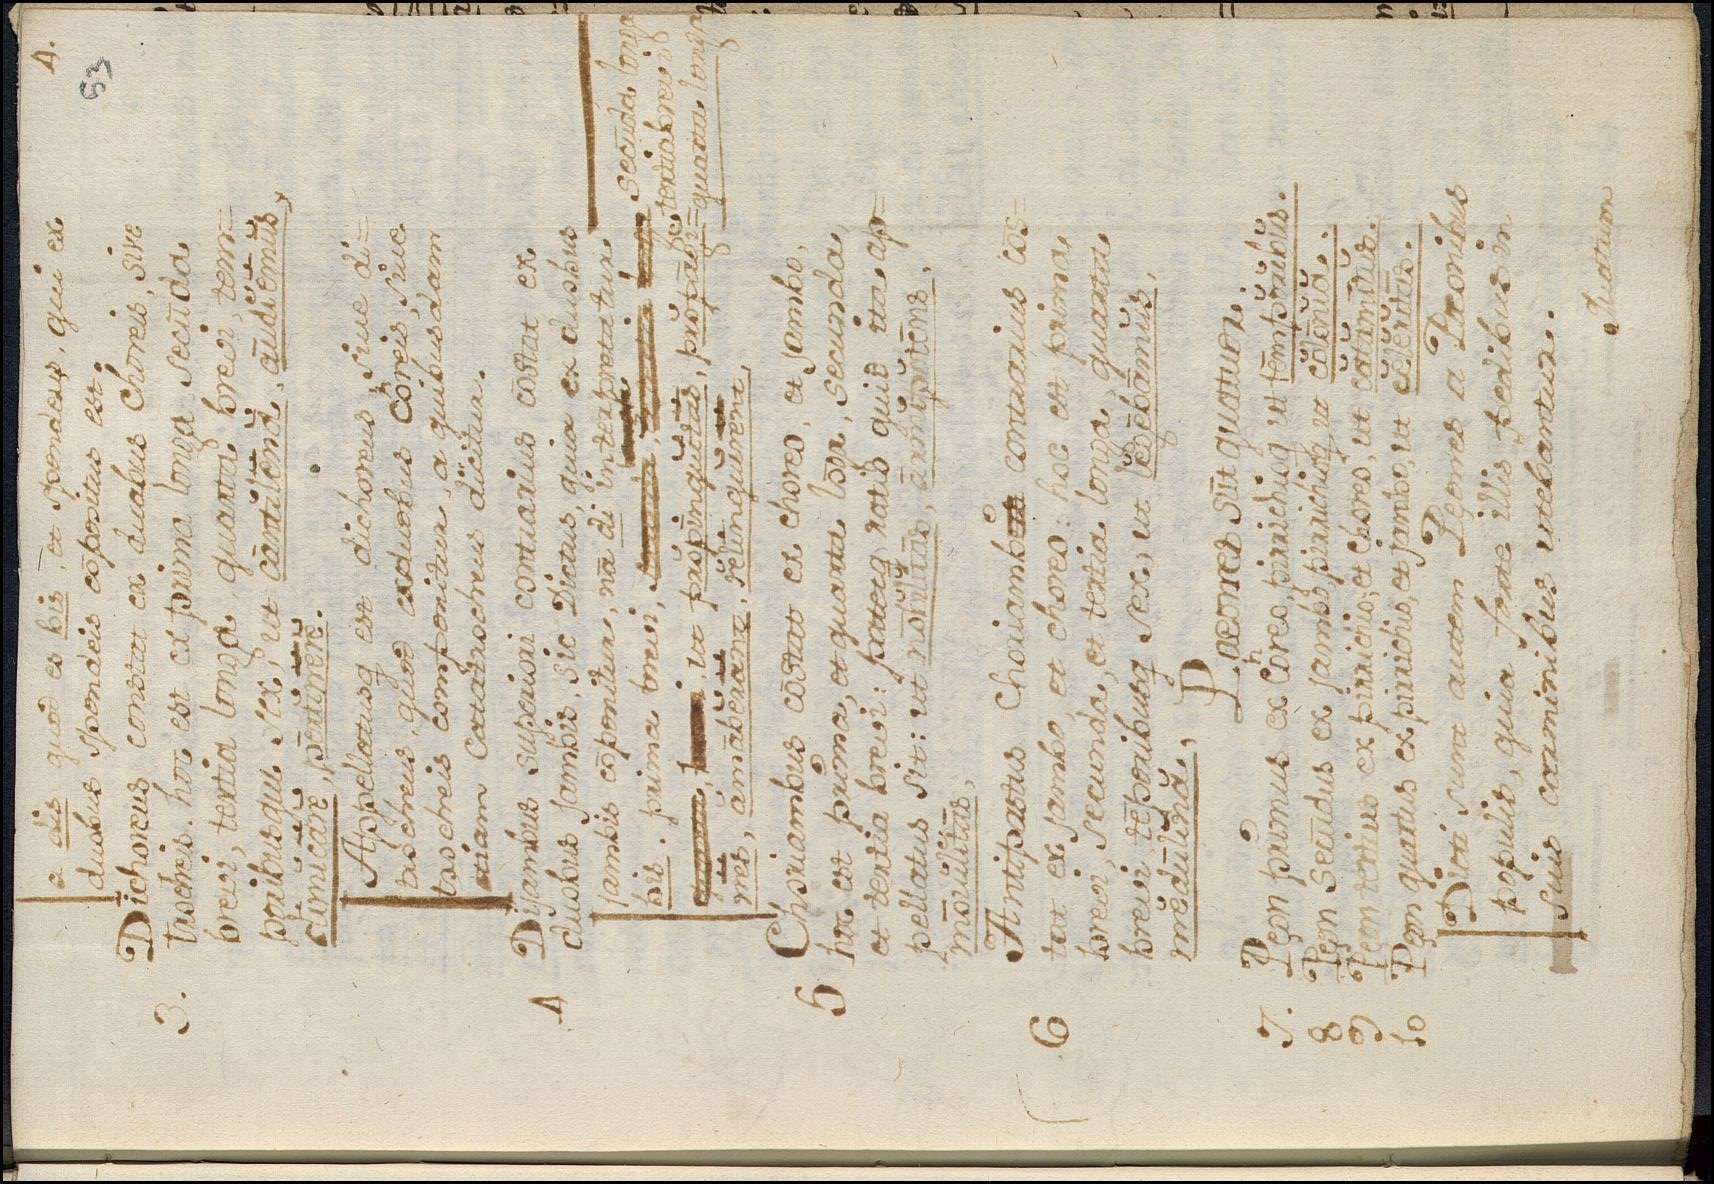 4.
53
a dis quod es bis, et spondeus, qui ex
duobus spondeis cōpositus est.
3. Dichoreus constat ex duabus Choreis, sive
trocheis. hoc est ex prima longa secūda
brevi, tertia longa, quarta brevi, tem=
poribusque sex, ut cāntĭlēnă, aūdĭēmŭs,
dīmĭcārĕ,
Appellatusq est dichoreus, sive di=
trocheus, quod ex duobus Choreis, sive
trocheis componitur, a quibusdam
etiam Catatrocheus dicitur.
4 Dijambus superiori contrarius cōstat ex
duobus Jambis, sic Dictus, quia ex duobus
Jambis cōponitur, nā di interpretatur
bis. prima brevi, secūda longa
tertia brevi
quarta longa
, ut prŏpīnquĭtās, prŏpāgĭ=
nes, ămābĕrant, rĕlīnquĕrent,
5 Choriambus cōstat ex choreo, et Jambo,
hoc est prima, et quarta lōga, secunda,
et tertia brevi: pateq ratis quid ita ap=
pellatus sit: ut nōbĭlĭtās, ārmĭpŏtēns,
mōbĭlĭtās,
6 Antipastus Choriambo contrarius cōs=
tat ex Jambo, et choreo: hoc est prima
brevi, secunda, et tertia longa, quarta
brevi tēporibusq sex, ut lĕgēbāmŭs,
mĕdūllīnă,
Paeones sūt quatuor.
7. Pęon primus ex Choreo, pirrichioq ut tēmpŏrĭbŭs.
8 Pęon Secūdus ex Jambo, pirrichioq ut cŏlēndă.
9 Pęon tertius ex pirrichio, et Choreo, ut
10 Pęon quartus ex pirrichio, et jambo, ut cĕlĕrĭtās.
Dicti sunt autem Pęones a Paeonibus
populis, quia ferte illis pedibus in
suis carminibus utebantur.